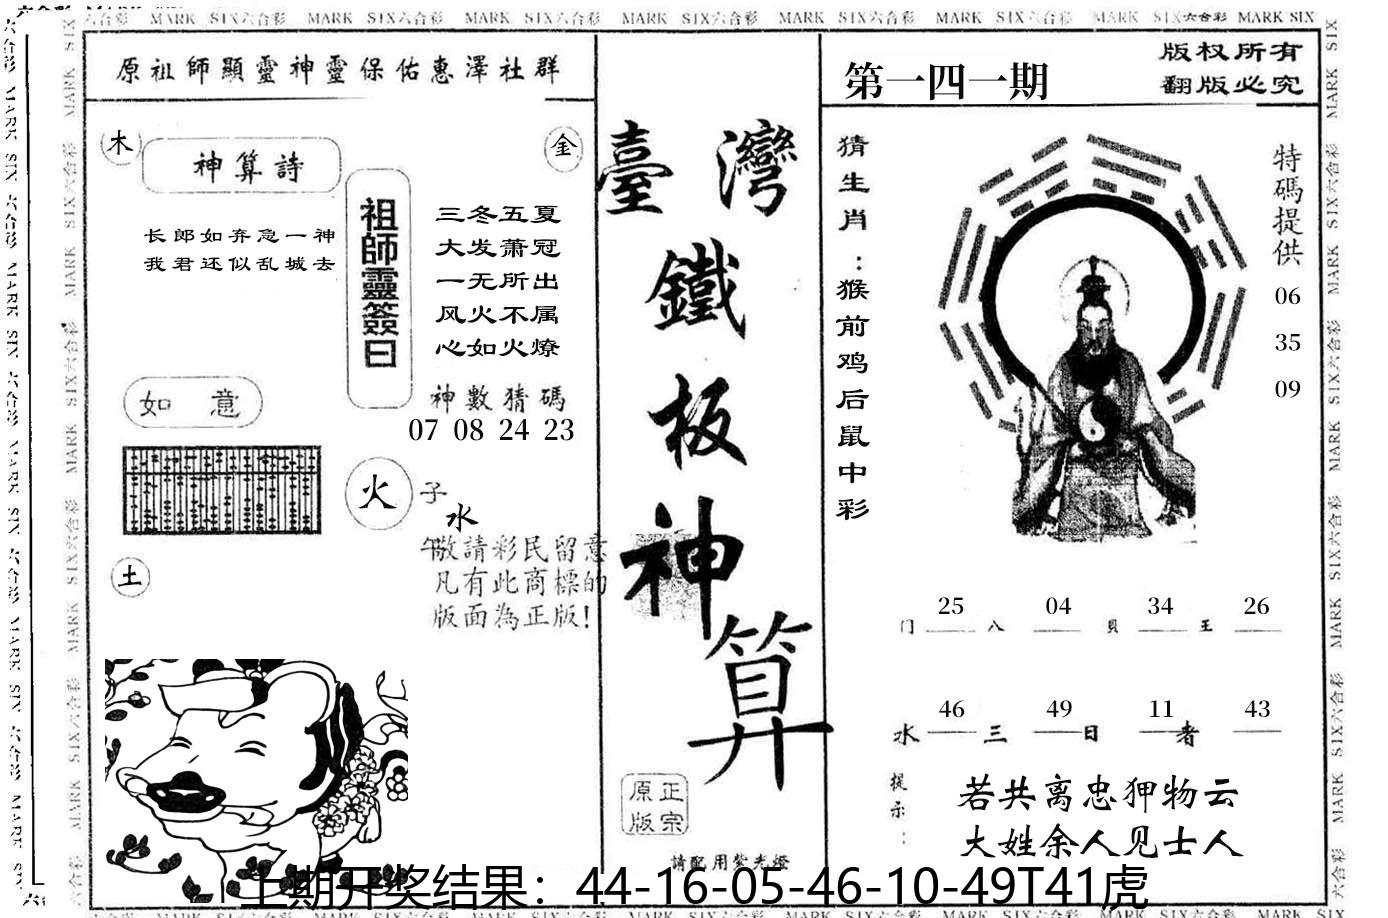 MARK SIX六合彩 MARK SIX六合彩 MARK SIX六合彩 MARK SIX六合彩 MARK SIX六合彩 MARK SIX六合彩 MARK SIX六合彩 MARK SIX
原祖師顯靈神靈保佑惠澤社群
木
神算詩
金
长郎如弃急一神
我君还似乱城去
祖師靈簽曰
三冬五夏
大发萧冠
一无所出
风火不属
心如火燎
神數猜碼
07 08 24 23
如意
火
子
水
午
敬請彩民留意
凡有此商標的
版面為正版!
土
臺灣
鐵
板
神
算
正宗
原版
請配用紫光燈
第一四一期
版权所有
翻版必究
猜生肖：猴前鸡后鼠中彩
特碼提供
06
35
09
25 04 34 26
门 八 贝 王
46 49 11 43
水 三 日 者
提示：
若共离忠狎物云
大姓余人见士人
上期开奖结果：44-16-05-46-10-49T41虎